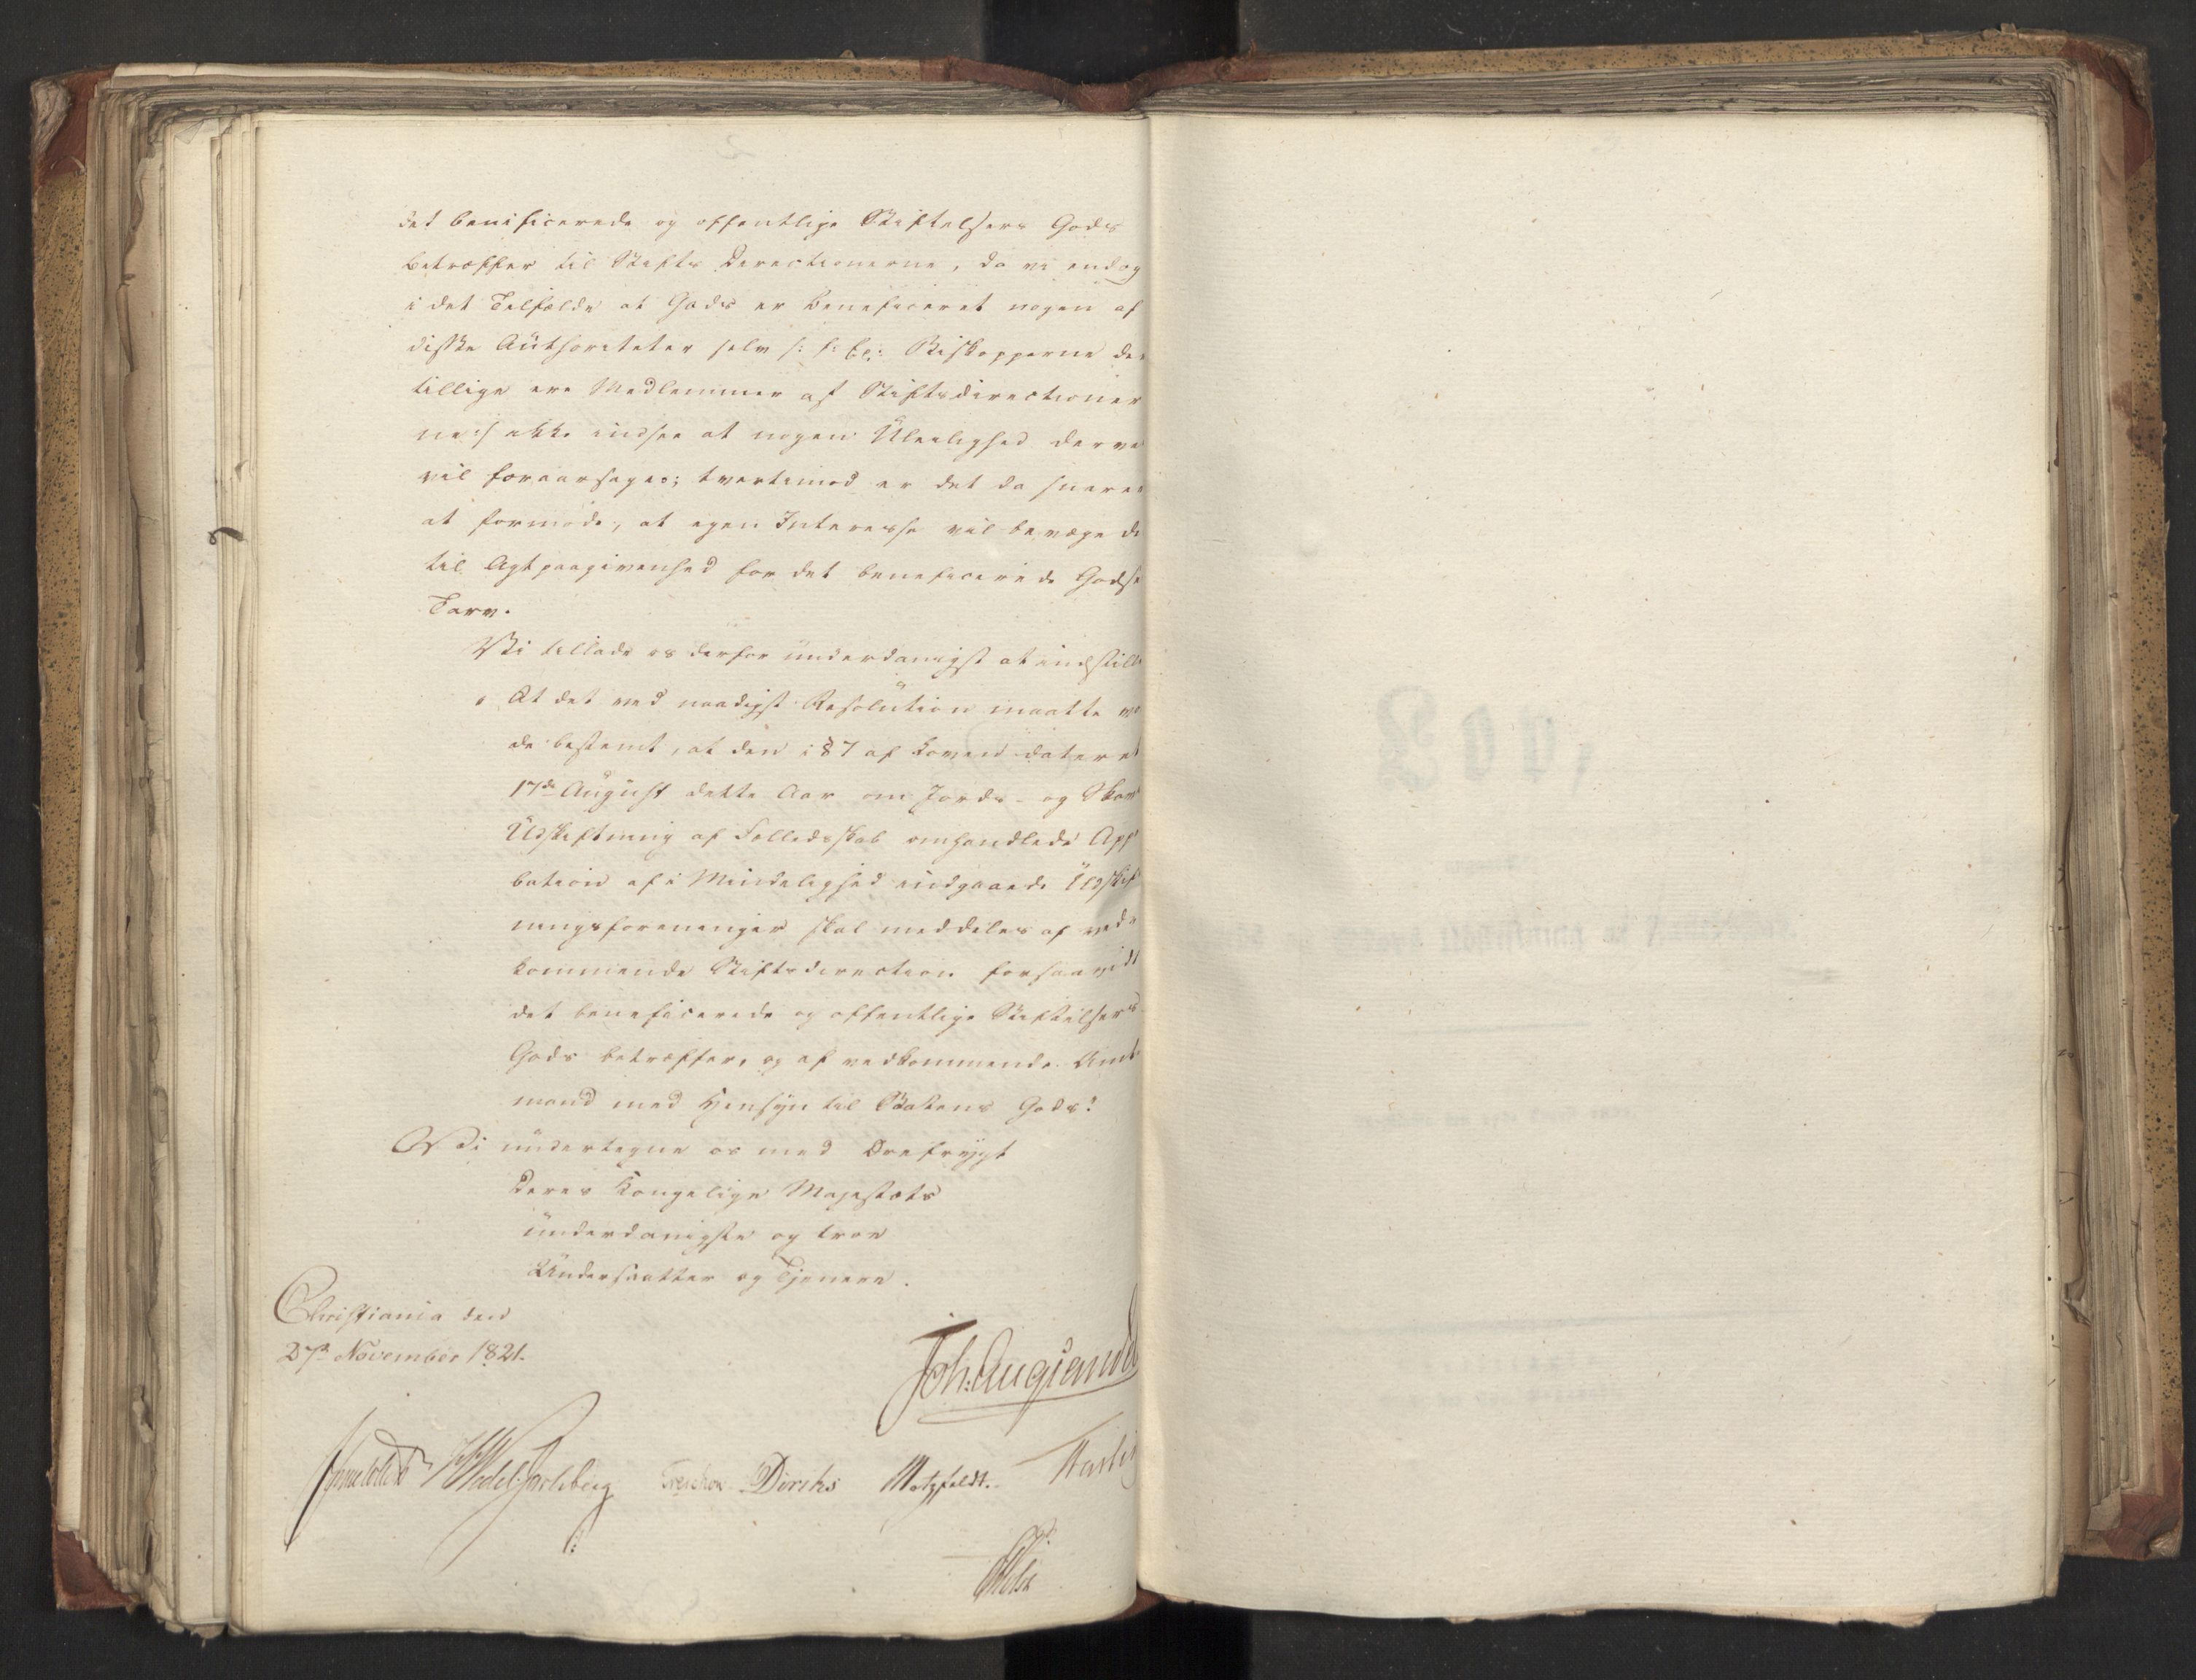 det beneficerede og offentlige Stiftelsers Gods
betræffer til Stifts Directionerne, da vi endog
i det Tilfælde at Gods er beneficeret nogen af
disse Authoriteter selv /: f: Ex: Biskopperne der
tillige ere Medlemmer af Stiftsdirectioner
ne :/ ikke indsee at nogen Uleilighed derve
vil foraarsages; tvertimod er det da snarere
at formode, at egen Interesse vil bevæge de
til Agtpaagivenhed for det beneficerede Godse
Tarv.
Vi tillade os derfor underdanigst at indstille
At det ved naadigst Resolution maatte vo
de bestemt, at den i § 7 af Loven dateret
17de August dette Aar om Jords- og Skov
Udskiftning af Fælledsskab omhandlede App
bation af i Mindelighed indgaaede Udskif
ningsforeninger skal meddeles af veda
kommende Stiftsdirection forsaavidt
det beneficerede og offentlige Stiftelsers
Gods betræffer, og af vedkommende Amt
mand med Hensyn til Statens Gods?
Vi undertegne os med Ærefrygt
Deres Kongelige Majestæts
underdanigste og troe
Undersaatter og Tjenere.
Christiania den
27de November 1821.
Joh: Aug: Sandels
Sommerhielm Wedel Jarlsberg Treschow Diriks Motzfeldt. Fasting
Holst
Lov,